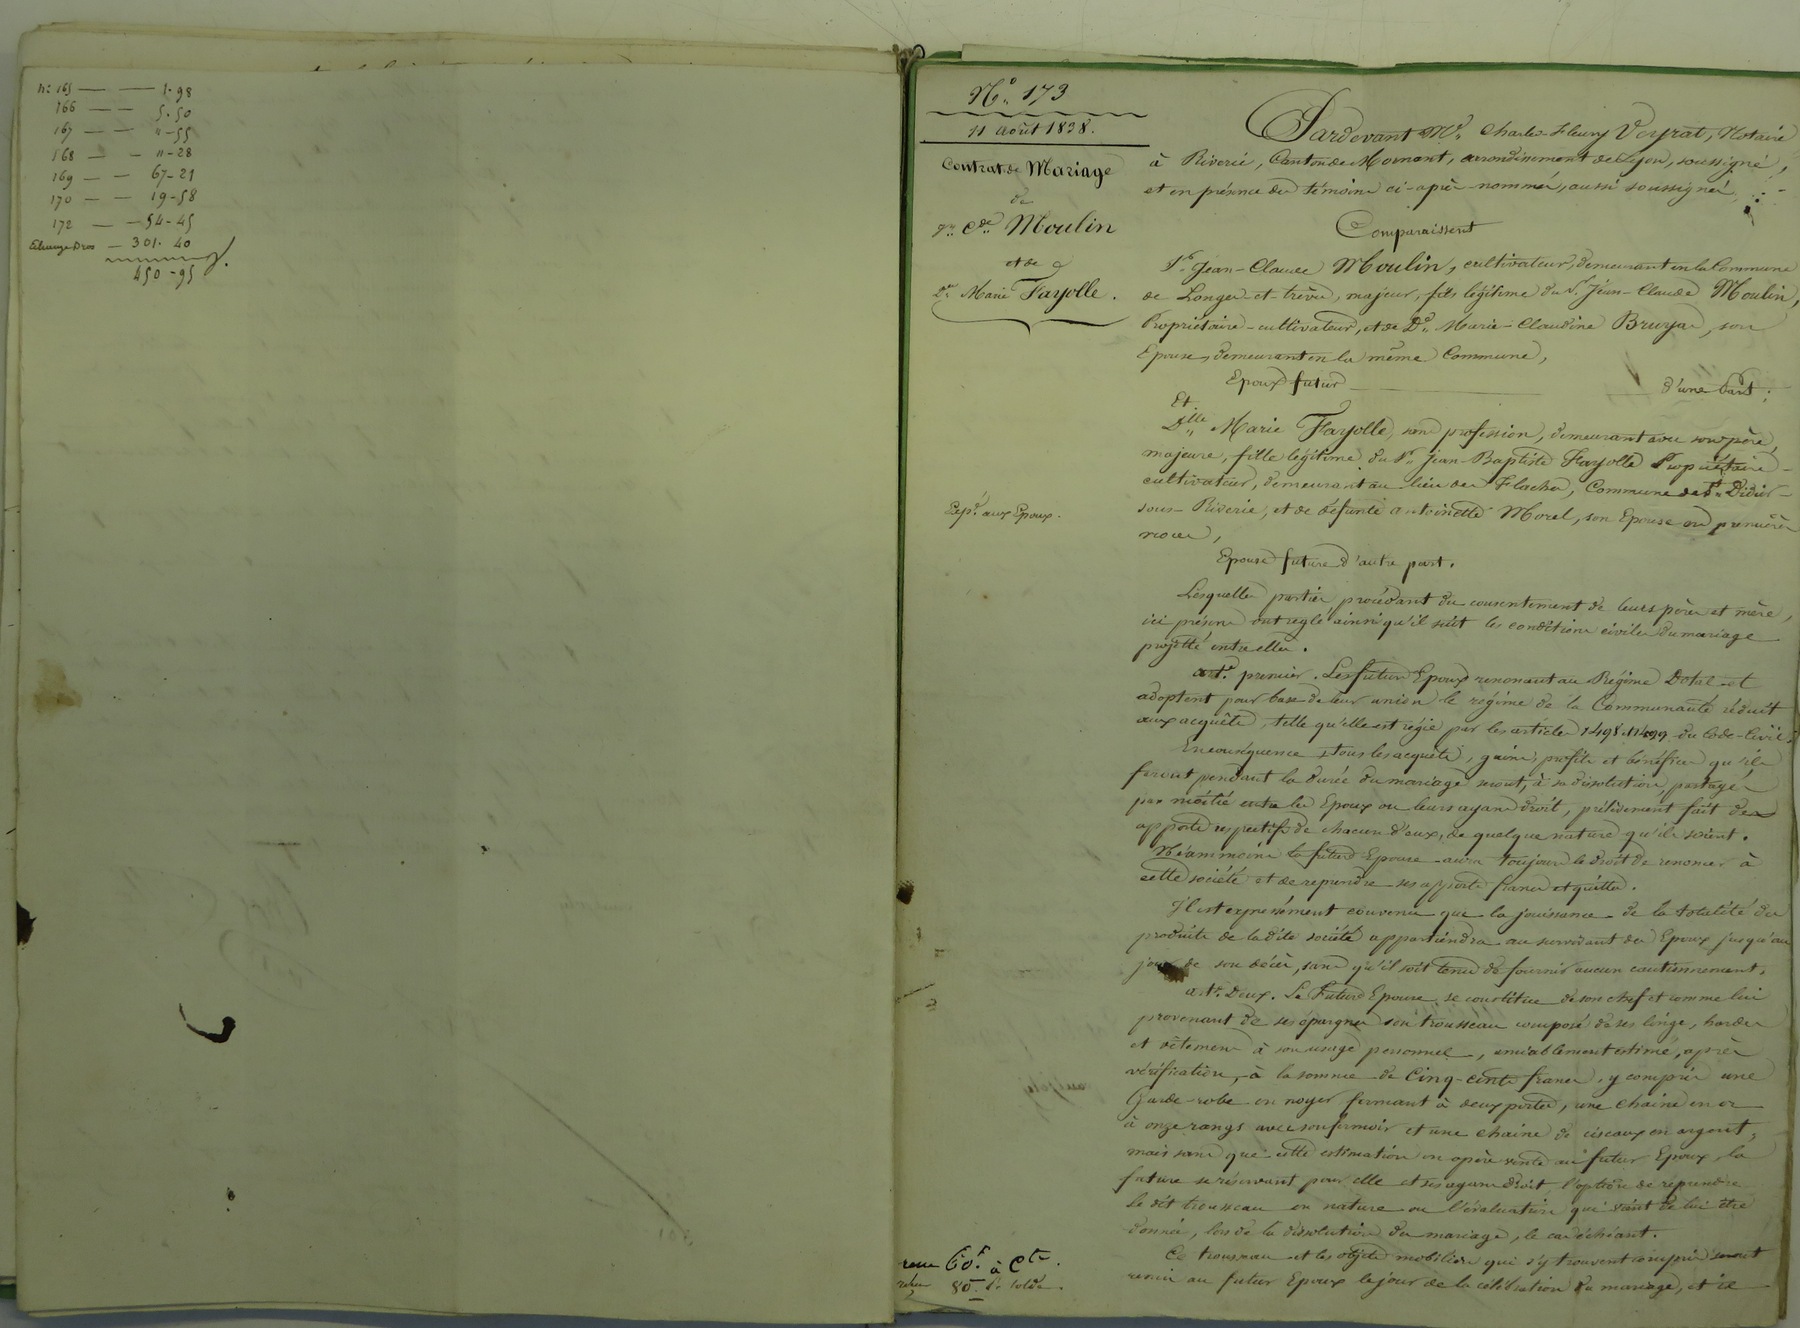 n: 165 — — 1-98
166 — — 5-50
167 — — "-55
168 — — "-28
169 — — 67-21
170 — — 19-58
172 — — 54-45
Echange Dros — 301. 40
450-95
N° 173
11 août 1838.
Contrat de Mariage
de
Moulin
et de
Dlle Marie Fayolle.
Expé aux Epoux.
60f à Cte.
80 pr solde.
Pardevant Me Charles-Fleury Veyrat, Notaire
à Riverie, Canton de Mornant, arrondissement de Lyon, soussigné,
et en présence des témoins ci-après nommés, aussi soussignés,
Comparaissent
Sr Jean-Claude Moulin, cultivateur, demeurant en la Commune
de Longes-et-trèves, majeur, fils légitime du Sr Jean-Claude Moulin,
Propriétaire-cultivateur, et de De Marie-Claudine Bruyas, son
Epouse, demeurant en la même Commune,
Epoux futur d'une part;
Et
Dlle Marie Fayolle, sans profession, demeurant avec son père,
majeure, fille légitime du Sr Jean-Baptiste Fayolle Propriétaire-
cultivateur, demeurant au lieu des Flaches, Commune de St Didier-
sous-Riverie, et de défunte antoinette Morel, son Epouse en premières
noces,
Epouse future d'autre part.
Lesquelles parties, procédant du consentement de leurs pères et mère,
ici présens ont réglé ainsi qu'il suit les conditions civiles du mariage
projetté entre elles.
art. premier. Les futurs Epoux renoncent au Régime Dotal et
adoptent pour base de leur union le régime de la Communauté réduit
aux acquêts, telle qu'elle est régie par les articles 1498 et 1499 du Code-Civil.
En conséquence tous les acquêts, gains, profits et bénéfices qu'ils
feront pendant la durée du mariage seront, à sa dissolution, partagés
par moitié entre les Epoux ou leurs ayans droit, prélèvement fait des
apports respectifs de chacun d'eux, de quelque nature qu'ils soient.
Néammoins la future Epouse aura toujours le droit de renoncer à
cette société et de reprendre ses apports francs et quittes.
Il est expressément convenu que la jouissance de la totalité des
produits de la dite société appartiendra au survivant des Epoux jusqu'au
jour de son décès, sans qu'il soit tenu de fournir aucun cautionnement.
art. Deux. La Future Epouse se constitue de son chef et comme lui
provenant de ses épargnes son trousseau composé de ses linge, hardes
et vêtemens à son usage personnel, amiablement estimé, après
vérification, à la somme de Cinq-cents francs, y compris une
Garde-robe en noyer fermant à deux portes, une chaine en or
à onze rangs avec son fermoir et une chaine de ciseaux en argent,
mais sans que cette estimation en opère vente au futur Epoux, la
future se réservant pour elle et ses ayans droit l'option de reprendre
le dit trousseau en nature ou l'évaluation qui vient de lui être
donnée, lors de la dissolution du mariage, le cas échéant.
Ce trousseau et les objets mobiliers qui s'y trouvent compris seront
remis au futur Epoux le jour de la célébration du mariage, et ce